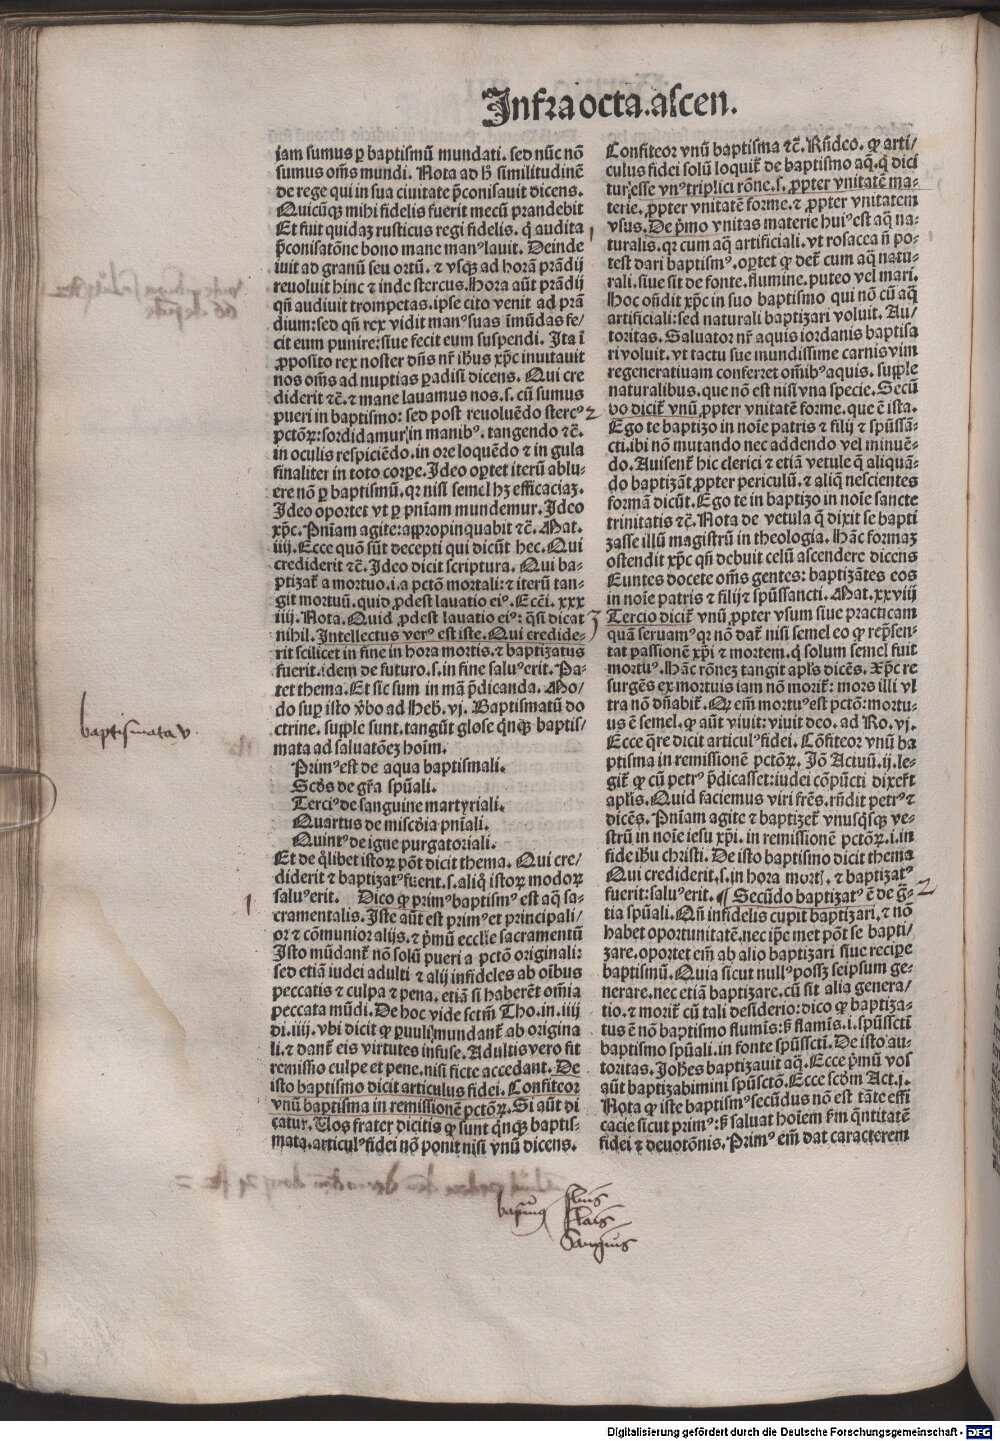 Infra octa. ascen.
iam sumus ꝑ baptismū mundati. sed nūc nō
sumus om̄s mundi. Nota ad hͦ similitudinē
de rege qui in sua ciuitate p̄conisauit dicens.
Quicūqꝫ mihi fidelis fuerit mecū prandebit
Et fuit quidaꝫ rusticus regi fidelis. q̄ audita
p̄conisatōne bono mane manꝰ lauit. Deinde
iuit ad granū seu ortū. ⁊ vsqꝫ ad horā prādij
reuoluit hinc ⁊ inde stercus. Hora aūt prādij
qn̄ audiuit trompetas. ipse cito venit ad prā
dium: sed qn̄ rex vidit manꝰ suas īmūdas fe/
cit eum punire: siue fecit eum suspendi. Ita ī
ꝓposito rex noster dn̄s nr̄ ih̄us xp̄c inuitauit
nos om̄s ad nuptias ꝑadisi dicens. Qui cre
diderit ⁊c̄. ⁊ mane lauamus nos. s. cū sumus
pueri in baptismo: sed post reuoluēdo stercꝰ
pctōꝝ: sordidamur in manibꝰ. tangendo ⁊c̄.
in oculis respiciēdo. in ore loquēdo ⁊ in gula
finaliter in toto corꝑe. Ideo oꝑtet iterū ablu-
ere nō ꝑ baptismū. qꝛ nisi semel hꝫ efficaciaꝫ.
Ideo oportet vt ꝑ pn̄iam mundemur. Ideo
xp̄c. Pn̄iam agite: appropinquabit ⁊c̄. Mat.
iiij. Ecce quō sūt decepti qui dicūt hec. Qui
crediderit ⁊c̄. Ideo dicit scriptura. Qui ba-
ptizat̃ a mortuo. i. a pctō mortali: ⁊ iterū tan-
git mortuū. quid ꝓdest lauatio eiꝰ. Ecc̄i. xxx
iiij. Nota. Quid ꝓdest lauatio eiꝰ: q̄si dicat
nihil. Intellectus verꝰ est iste. Qui credide-
rit scilicet in fine in hora mortis. ⁊ baptizatus
fuerit. idem de futuro. s. in fine saluꝰ erit. Pa-
tet thema. Et sic sum in mā p̄dicanda. Mo/
do suꝑ isto v̄bo ad Heb̄. vj. Baptismatū do
ctrine. supple sunt. tangūt glose qͥnqꝫ baptis/
mata ad saluatōeꝫ hoīm.
Primꝰ est de aqua baptismali.
Scd̄s de gr̄a spūali.
Terciꝰ de sanguine martyriali.
Quartus de misc̄dia pn̄iali.
Quintꝰ de igne purgatoriali.
Et de qͦlibet istoꝝ pōt dicit thema. Qui cre/
diderit ⁊ baptizatꝰ fuerit. s. aliqͦ istoꝝ modoꝝ
saluꝰ erit. Dico ꝙ primꝰ baptismꝰ est aq̄ sa-
cramentalis. Iste aūt est primꝰ et principali/
or ⁊ cōmunior alijs. ⁊ pͥmū ecclie sacramentū
Isto mūdant̃ nō solū pueri a pctō originali:
sed etiā iudei adulti ⁊ alij infideles ab oībus
peccatis ⁊ culpa ⁊ pena. etiā si haberēt om̄ia
peccata mūdi. De hoc vide sctm̄ Tho. in. iiij
di. iiij. vbi dicit ꝙ ꝑuuli mundant̃ ab origina
li. ⁊ dant̃ eis virtutes infuse. Adultis vero fit
remissio culpe et pene. nisi ficte accedant. De
isto baptismo dicit articulus fidei. Confiteor
vnū baptisma in remissionē pctōꝝ. Si aūt di
catur. Vos frater dicitis ꝙ sunt qͥnqꝫ baptis-
mata. articulꝰ fidei nō ponit nisi vnū dicens.
Confiteor vnū baptisma ⁊c̄. Rn̄deo. ꝙ arti/
culus fidei solū loquit̃ de baptismo aq̄. q̄ dici
tur esse vnꝰ triplici rōne. s. ꝓpter vnitatē ma-
terie. ꝓpter vnitatē forme. ⁊ ꝓpter vnitatem
vsus. De pͥmo vnitas materie huiꝰ est aq̄ na-
turalis. qꝛ cum aq̄ artificiali. vt rosacea n̄ po-
test dari baptismꝰ. oꝑtet ꝙ det̃ cum aq̄ natu-
rali. siue sit de fonte. flumine. puteo vel mari.
Hoc on̄dit xp̄c in suo baptismo qui nō cū aq̄
artificiali: sed naturali baptizari voluit. Au/
toritas. Saluator nr̄ aquis iordanis baptisa
ri voluit. vt tactu sue mundissime carnis vim
regeneratiuam conferret om̄ibꝰ aquis. supple
naturalibus. que nō est nisi vna specie. Secū
do dicit̃ vnū ꝓpter vnitatē forme. que ē ista.
Ego te baptizo in noīe patris ⁊ filij ⁊ spūssā-
cti. ibi nō mutando nec addendo vel minuē-
do. Auisent̃ hic clerici ⁊ etiā vetule q̄ aliquā-
do baptizāt ꝓpter periculū. ⁊ aliq̄ nescientes
formā dicūt. Ego te in baptizo in noīe sancte
trinitatis ⁊c̄. Nota de vetula q̄ dixit se bapti
zasse illū magistrū in theologia. Hāc formaꝫ
ostendit xp̄c qn̄ debuit celū ascendere dicens
Euntes docete om̄s gentes: baptizātes eos
in noīe patris ⁊ filij ⁊ spūssancti. Mat. xxviij
Tercio dicit̃ vnū ꝓpter vsum siue practicam
quā seruamꝰ qꝛ nō dat̃ nisi semel eo ꝙ rep̄sen-
tat passionē xp̄i ⁊ mortem. q̄ solum semel fuit
mortuꝰ. Hāc rōneꝫ tangit apl̄s dicēs. Xp̄c re
surgēs ex mortuis iam nō morit̃: mors illi vl
tra nō dn̄abit̃. Qꝫ em̄ mortuꝰ est pctō: mortu-
us ē semel. ꝙ aūt viuit: viuit deo. ad Ro. vj.
Ecce q̄re dicit articulꝰ fidei. Cōfiteor vnū ba
ptisma in remissionē pctōꝝ. Iō Actuū. ij. le-
git̃ ꝙ cū petrꝰ p̄dicasset: iudei cōpūcti dixer̃t
apl̄is. Quid faciemus viri fr̄es. rn̄dit petrꝰ ⁊
dicēs. Pn̄iam agite ⁊ baptizet̃ vnusqͥsqꝫ ve-
strū in noīe iesu xp̄i. in remissionē pctōꝝ. i. in
fide ih̄u christi. De isto baptismo dicit thema
Qui crediderit. s. in hora mort̃. ⁊ baptizatꝰ
fuerit: saluꝰ erit. ¶ Secūdo baptizatꝰ ē de gr̄-
tia spūali. Qn̄ infidelis cupit baptizari. ⁊ nō
habet oportunitatē. nec ip̄e met pōt se bapti/
zare. oportet em̄ ab alio baptizari siue reciꝑe
baptismū. Quia sicut nullꝰ possꝫ seipsum ge-
nerare. nec etiā baptizare. cū sit alia genera/
tio. ⁊ morit̃ cū tali desiderio: dico ꝙ baptiza-
tus ē nō baptismo flumīs: sꝫ flamīs. i. spūsscti
baptismo spūali. in fonte spūsscti. De isto au-
toritas. Joh̄es baptizauit aq̄. Ecce pͥmū vos
aūt baptizabimini spūsctō. Ecce scd̄m Act. j.
Nota ꝙ iste baptismꝰ secūdus nō est tāte effi
cacie sicut primꝰ: sꝫ saluat hoīem ẜm qͣntitatē
fidei ⁊ deuotōnis. Primꝰ em̄ dat caracterem
baptismata v.
1
1
2
3
2
flūis
flāis
Sanguis
Digitalisierung gefördert durch die Deutsche Forschungsgemeinschaft - DFG